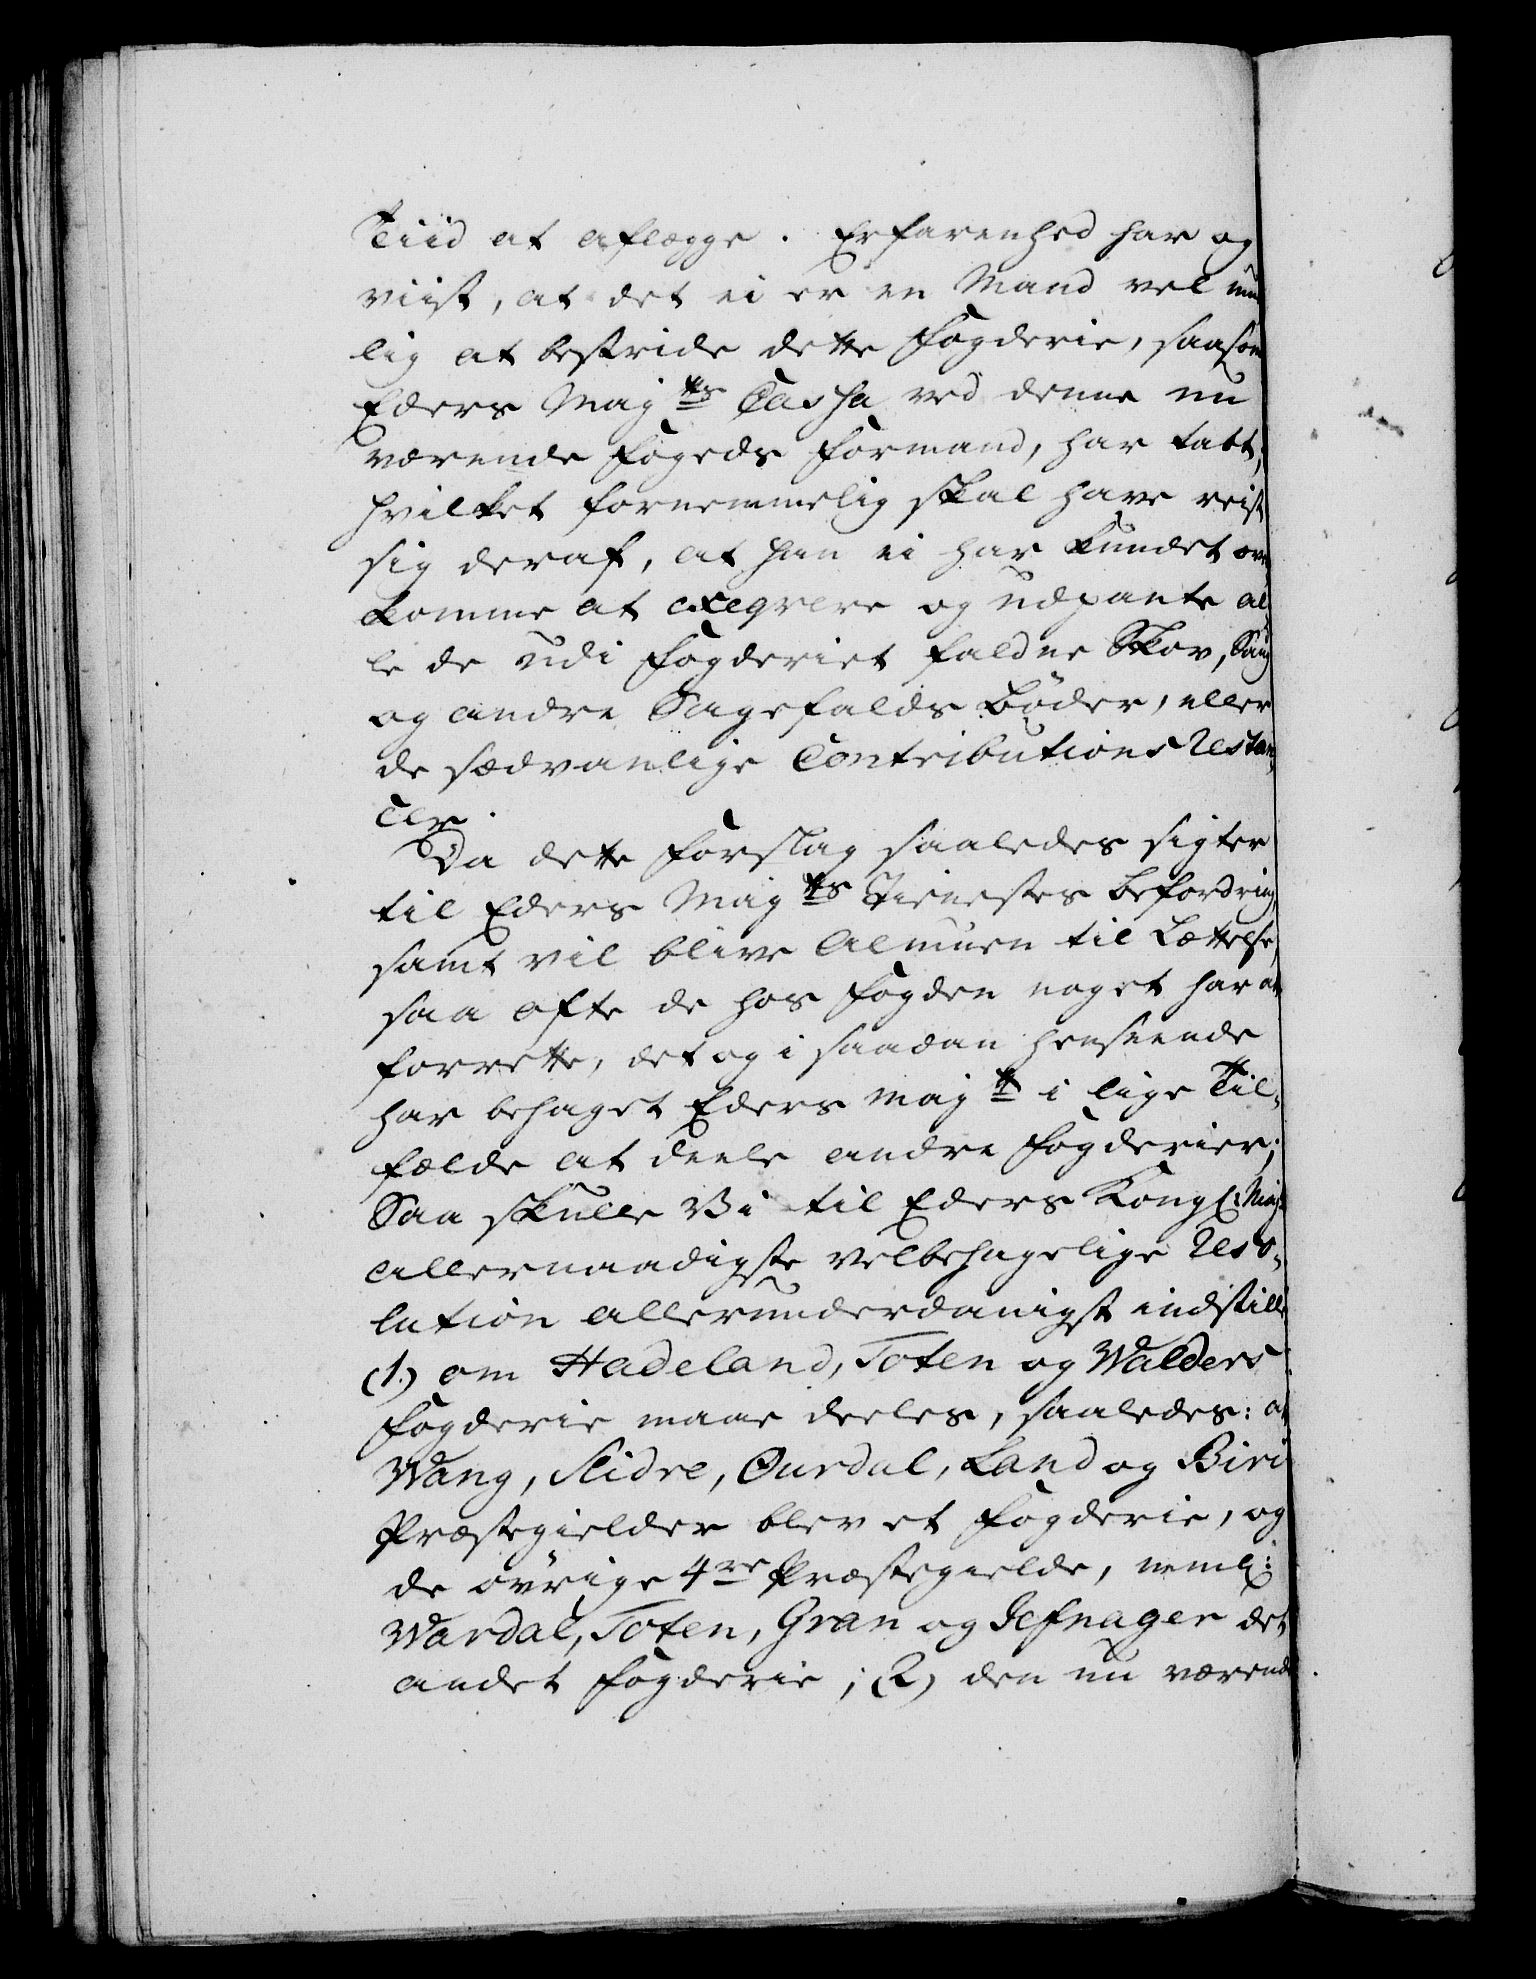 Tiid at aflægge. Erfarenhed har og
viist, at det ei er en Mand vel mue
lig at bestride dette Fogderie, saasom
Eders Majts Cassa ved denne nu
værende Fogeds Formand, har tabt,
hvilket fornemmelig skal have reist
sig deraf, at han ei har kundet over
komme at exeqvere og udpante al
le de udi Fogderiet faldne Skov, Saug
og andre Sagefalds Bøder, eller
de sædvanlige Contributions Restan,
cer.
Da dette Forslag saaledes sigter
til Eders Majts Tienestes Befordring,
samt vil blive Almuen til Lættelse,
saa ofte de hos Fogden noget har at
forrette, det og i saadan Henseende
har behaget Eders Majt i lige Til,
fælde at deele andre Fogderier;
Saa skulle Vi til Eders Kongl: Majts
allernaadigste velbehagelige Reso,
lution allerunderdanigst indstille
(1.) om Hadeland, Toten og Walders
Fogderie maae deeles, saaledes: at
Wang, Slidre, Ourdal, Land og Biri
Præstegielder blev et Fogderie, og
de øvrige 4re Præstegielde, neml:
Wardal, Toten, Gran og Jefnager det
andet Fogderie; (2) den nu værende